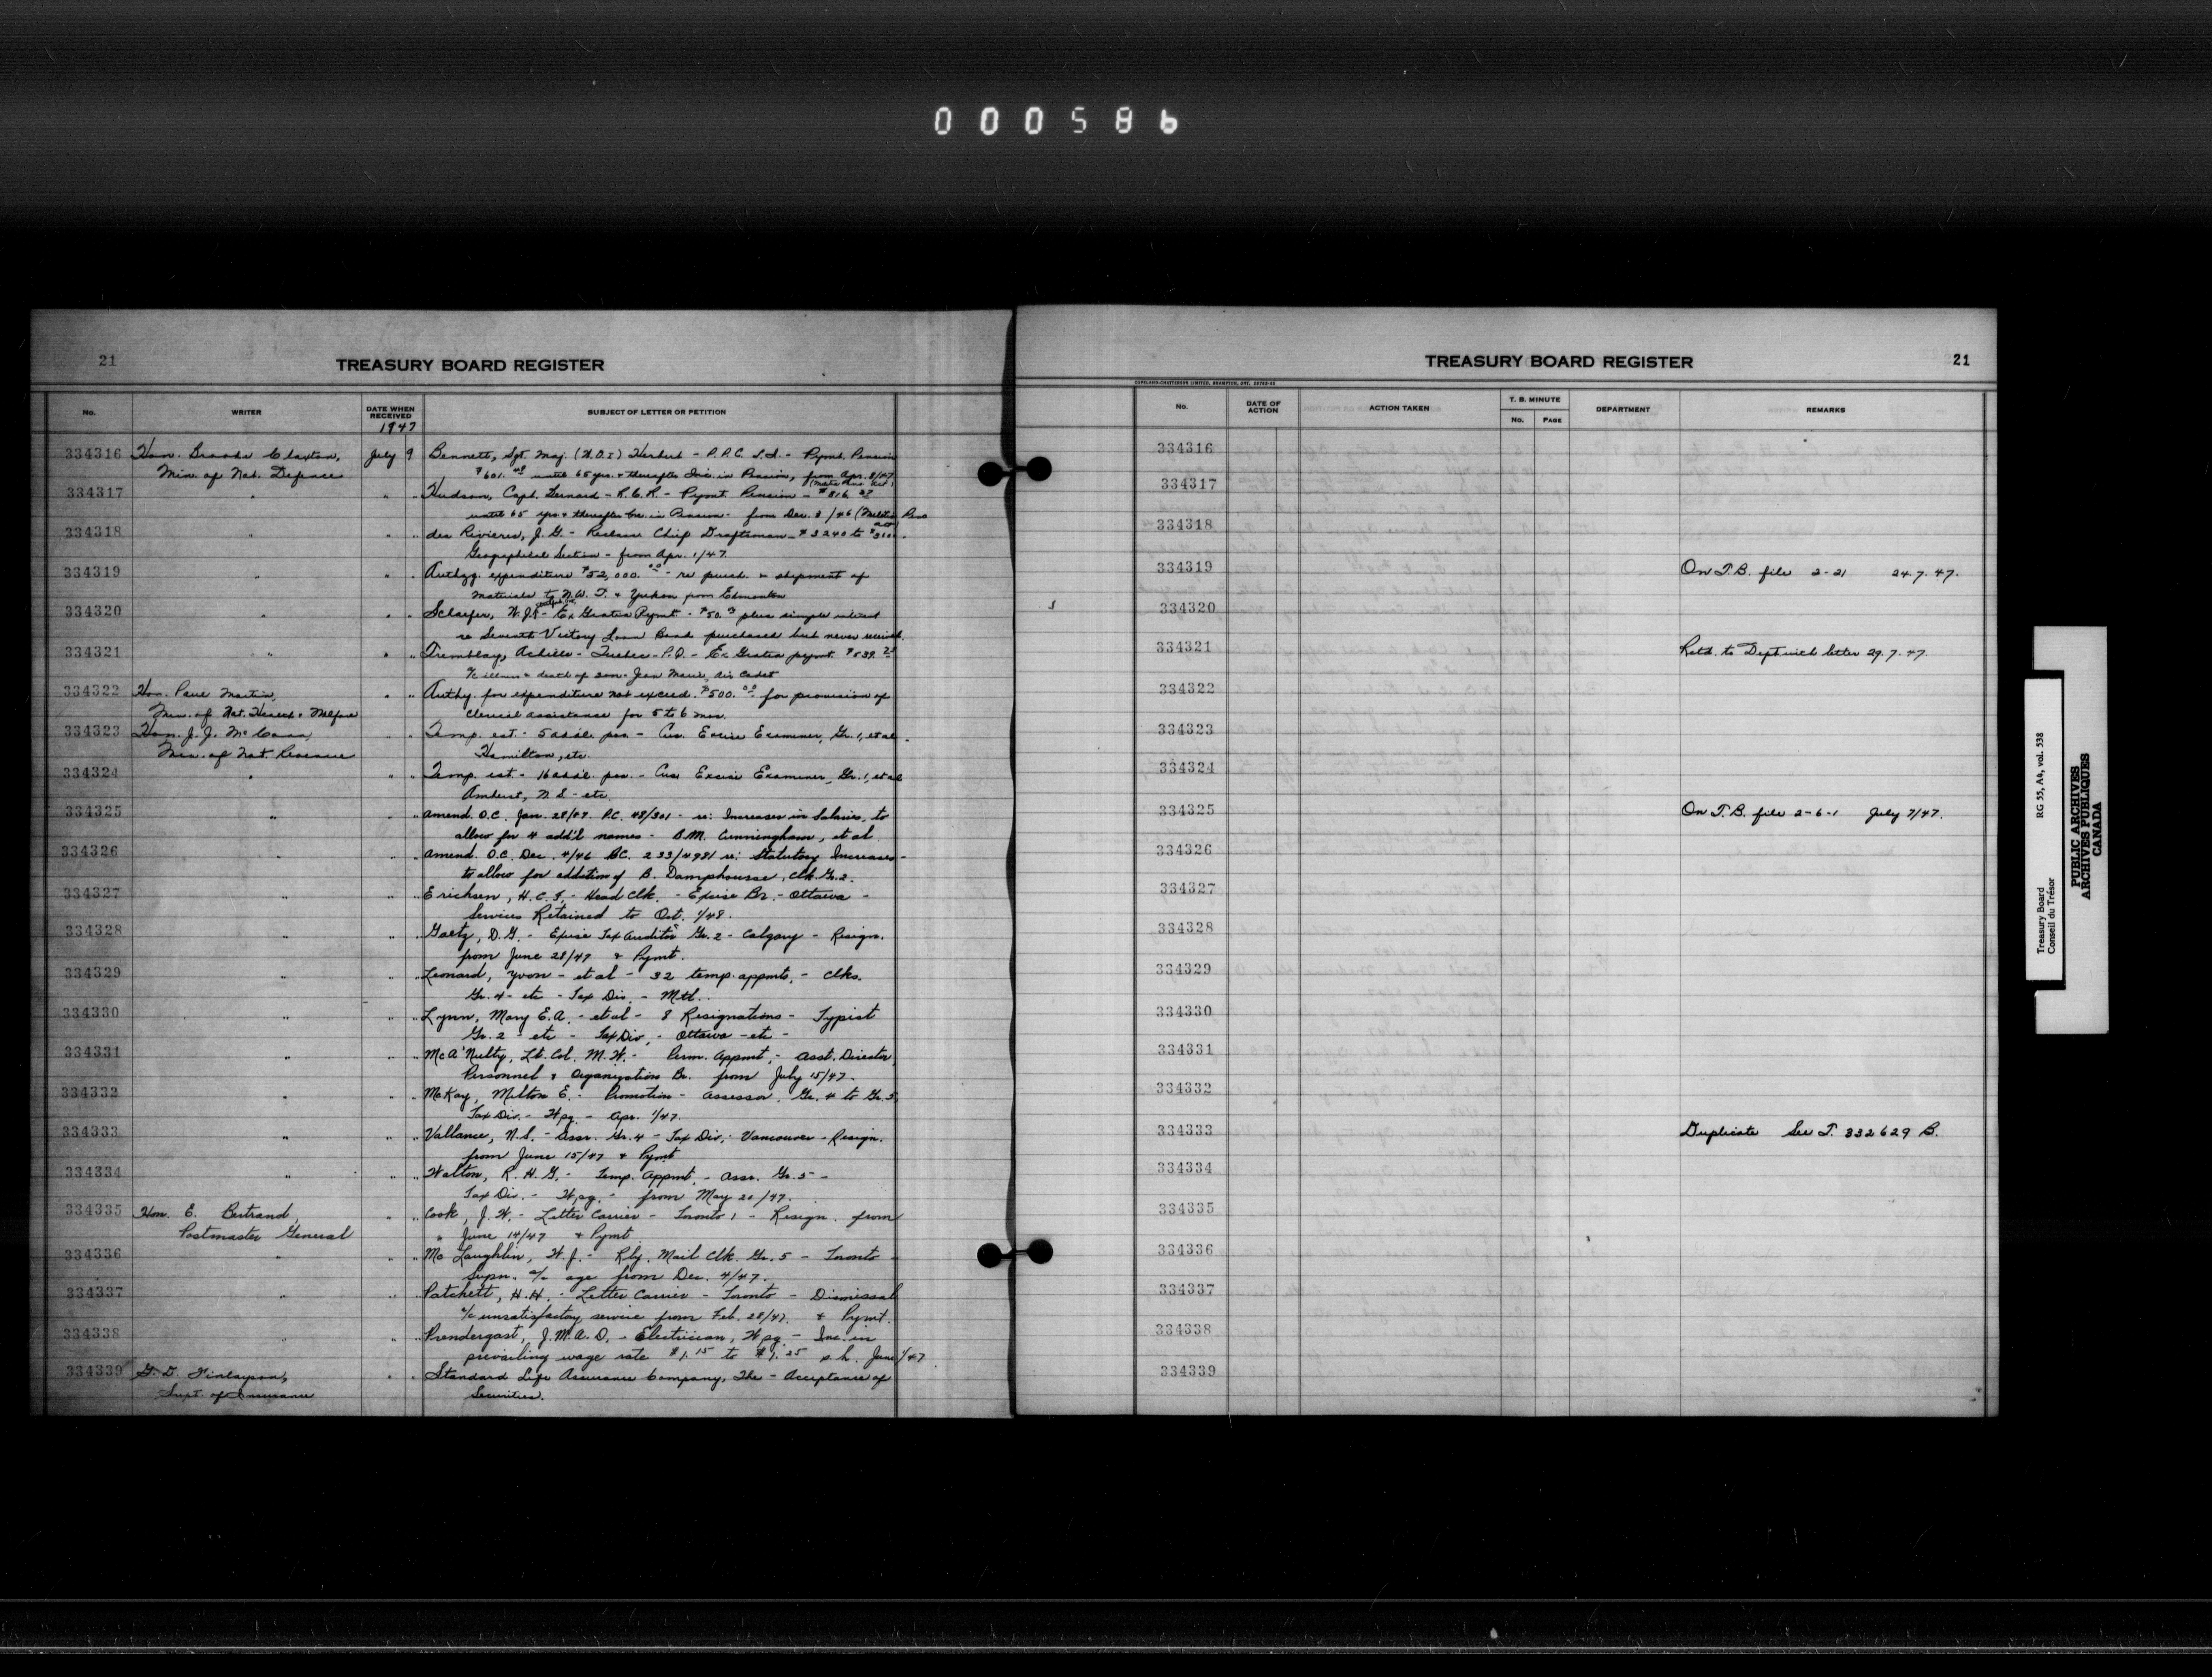 000586
21
TREASURY BOARD REGISTER
No. WRITER DATE WHEN RECEIVED SUBJECT OF LETTER OR PETITION
1947
334316 Hon. Brooke Claxton, July 9 Bennett, Sgt. Maj. (W.O.I) Herbert - P.P.C.L.I. - Pymt. Pension
Min. of Nat. Defence $601. until 65 yrs. & thereafter Inc. in Pension, from Apr. 8/47
334317 " " " Hudson, Capt. Bernard - R.C.R. - Pymt. Pension - $816
until 65 yrs. & thereafter Inc. in Pension - from Dec. 8/46 (Militia Pens
Act)
334318 " " " des Rivieres, J.G. - Reclass. Chief Draftsman - $3240 to
Geographical Section - from Apr. 1/47.
334319 " " " Authzg. expenditure $52,000.00 - re purch. & shipment of
materials to N.W.T. & Yukon from Edmonton
334320 " " " Schaefer, - Ex Gratia Pymt. - $50. plus simple interest
re Seventh Victory Loan Bond purchased but never received.
334321 " " " Tremblay, Achille - Quebec - P.Q. - Ex Gratia pymt. $539.
a/c illness & death of son - Jean Marie, Air Cadet
334322 Hon. Paul Martin, " " Authy. for expenditure not exceed. $500.00 for provision of
Min. of Nat. Health & Welfare clerical assistance for 5 to 6 mos.
334323 Hon. J.J. McCann, " " Temp. est. - 5 add'l. pos. - Cus. Excise Examiner, Gr. 1, et al -
Min. of Nat. Revenue Hamilton, etc.
334324 " " " Temp. est - 16 add'l. pos. - Cus Excise Examiner, Gr. 1, et al
Amherst, N.S. - etc.
334325 " " " Amend. O.C. Jan. 28/47. P.C. 48/301 - re: Increases in Salaries, to
allow for 4 add'l names - B.M. Cunningham, et al
334326 " " " Amend. O.C. Dec. 4/46 P.C. 233/4981 re: Statutory Increases -
to allow for addition of B. Damphousse, Clk. Gr. 2.
334327 " " " Erichsen, H.C.F. - Head Clk. - Excise Br. - Ottawa -
Services Retained to Oct. 1/48.
334328 " " " Goetz, D.G. - Excise Tax Auditor Gr. 2 - Calgary - Resign.
from June 28/47 & Pymt.
334329 " " " Leonard, Yvon - et al - 32 temp. appmts. - Clks.
Gr. 4 - etc - Tax Div. - Mtl.
334330 " " " Lynn, Mary E.A. - et al - 8 Resignations - Typist
Gr. 2 - etc - Tax Div. - Ottawa - etc -
334331 " " " McA'Nulty, Lt. Col. M.W. - Perm. Appmt. - Asst. Director
Personnel & Organization Br. from July 15/47.
334332 " " " McKay, Milton E. - Promotion - Assessor, Gr. 4 to Gr. 5
Tax Div. - Wpg - Apr. 1/47.
334333 " " " Vallance, N.S. - Assr. Gr. 4 - Tax Div. - Vancouver - Resign.
from June 15/47 & Pymt
334334 " " " Walton, R.H.G. - Temp. Appmt. - Assr. Gr. 5 -
Tax Div. - Wpg. - from May 20/47.
334335 Hon. E. Bertrand, " " Cook, J.W. - Letter Carrier - Toronto 1 - Resign. from
Postmaster General " June 14/47 & Pymt
334336 " " " McLaughlin, W.J. - Rly. Mail Clk. Gr. 5 - Toronto -
Supn. a/c age from Dec. 4/47.
334337 " " " Patchett, H.H. - Letter Carrier - Toronto - Dismissal
a/c unsatisfactory service from Feb. 28/47. & Pymt.
334338 " " " Prendergast, J.M.A.D. - Electrician, Wpg - Inc. in
prevailing wage rate $1.15 to $1.25 p.h. June 1/47.
334339 G.D. Finlayson, " " Standard Life Assurance Company, The - Acceptance of
Supt. of Insurance Securities.
TREASURY BOARD REGISTER
21
COPELAND-CHATTERSON LIMITED, BRAMPTON, ONT.
No. DATE OF ACTION ACTION TAKEN T. B. MINUTE No. PAGE DEPARTMENT REMARKS
334316
334317
334318
334319 On T.B. file 2-21 24.7.47.
334320
334321 Retd. to Dept. with letter 29.7.47
334322
334323
334324
334325 On T.B. file 2-6-1 July 7/47.
334326
334327
334328
334329
334330
334331
334332
334333 Duplicate See T. 332629 B.
334334
334335
334336
334337
334338
334339
Treasury Board RG 55, A4, vol. 538
Conseil du Trésor
PUBLIC ARCHIVES
ARCHIVES PUBLIQUES
CANADA